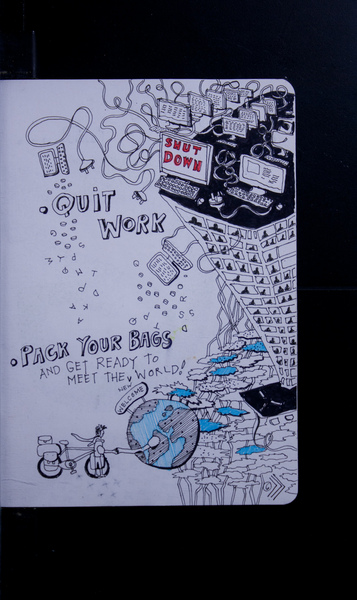 SHUT
DOWN
• QUIT
WORK
• PACK YOUR BAGS
AND GET READY TO
MEET THE NEW WORLD!
WELCOME